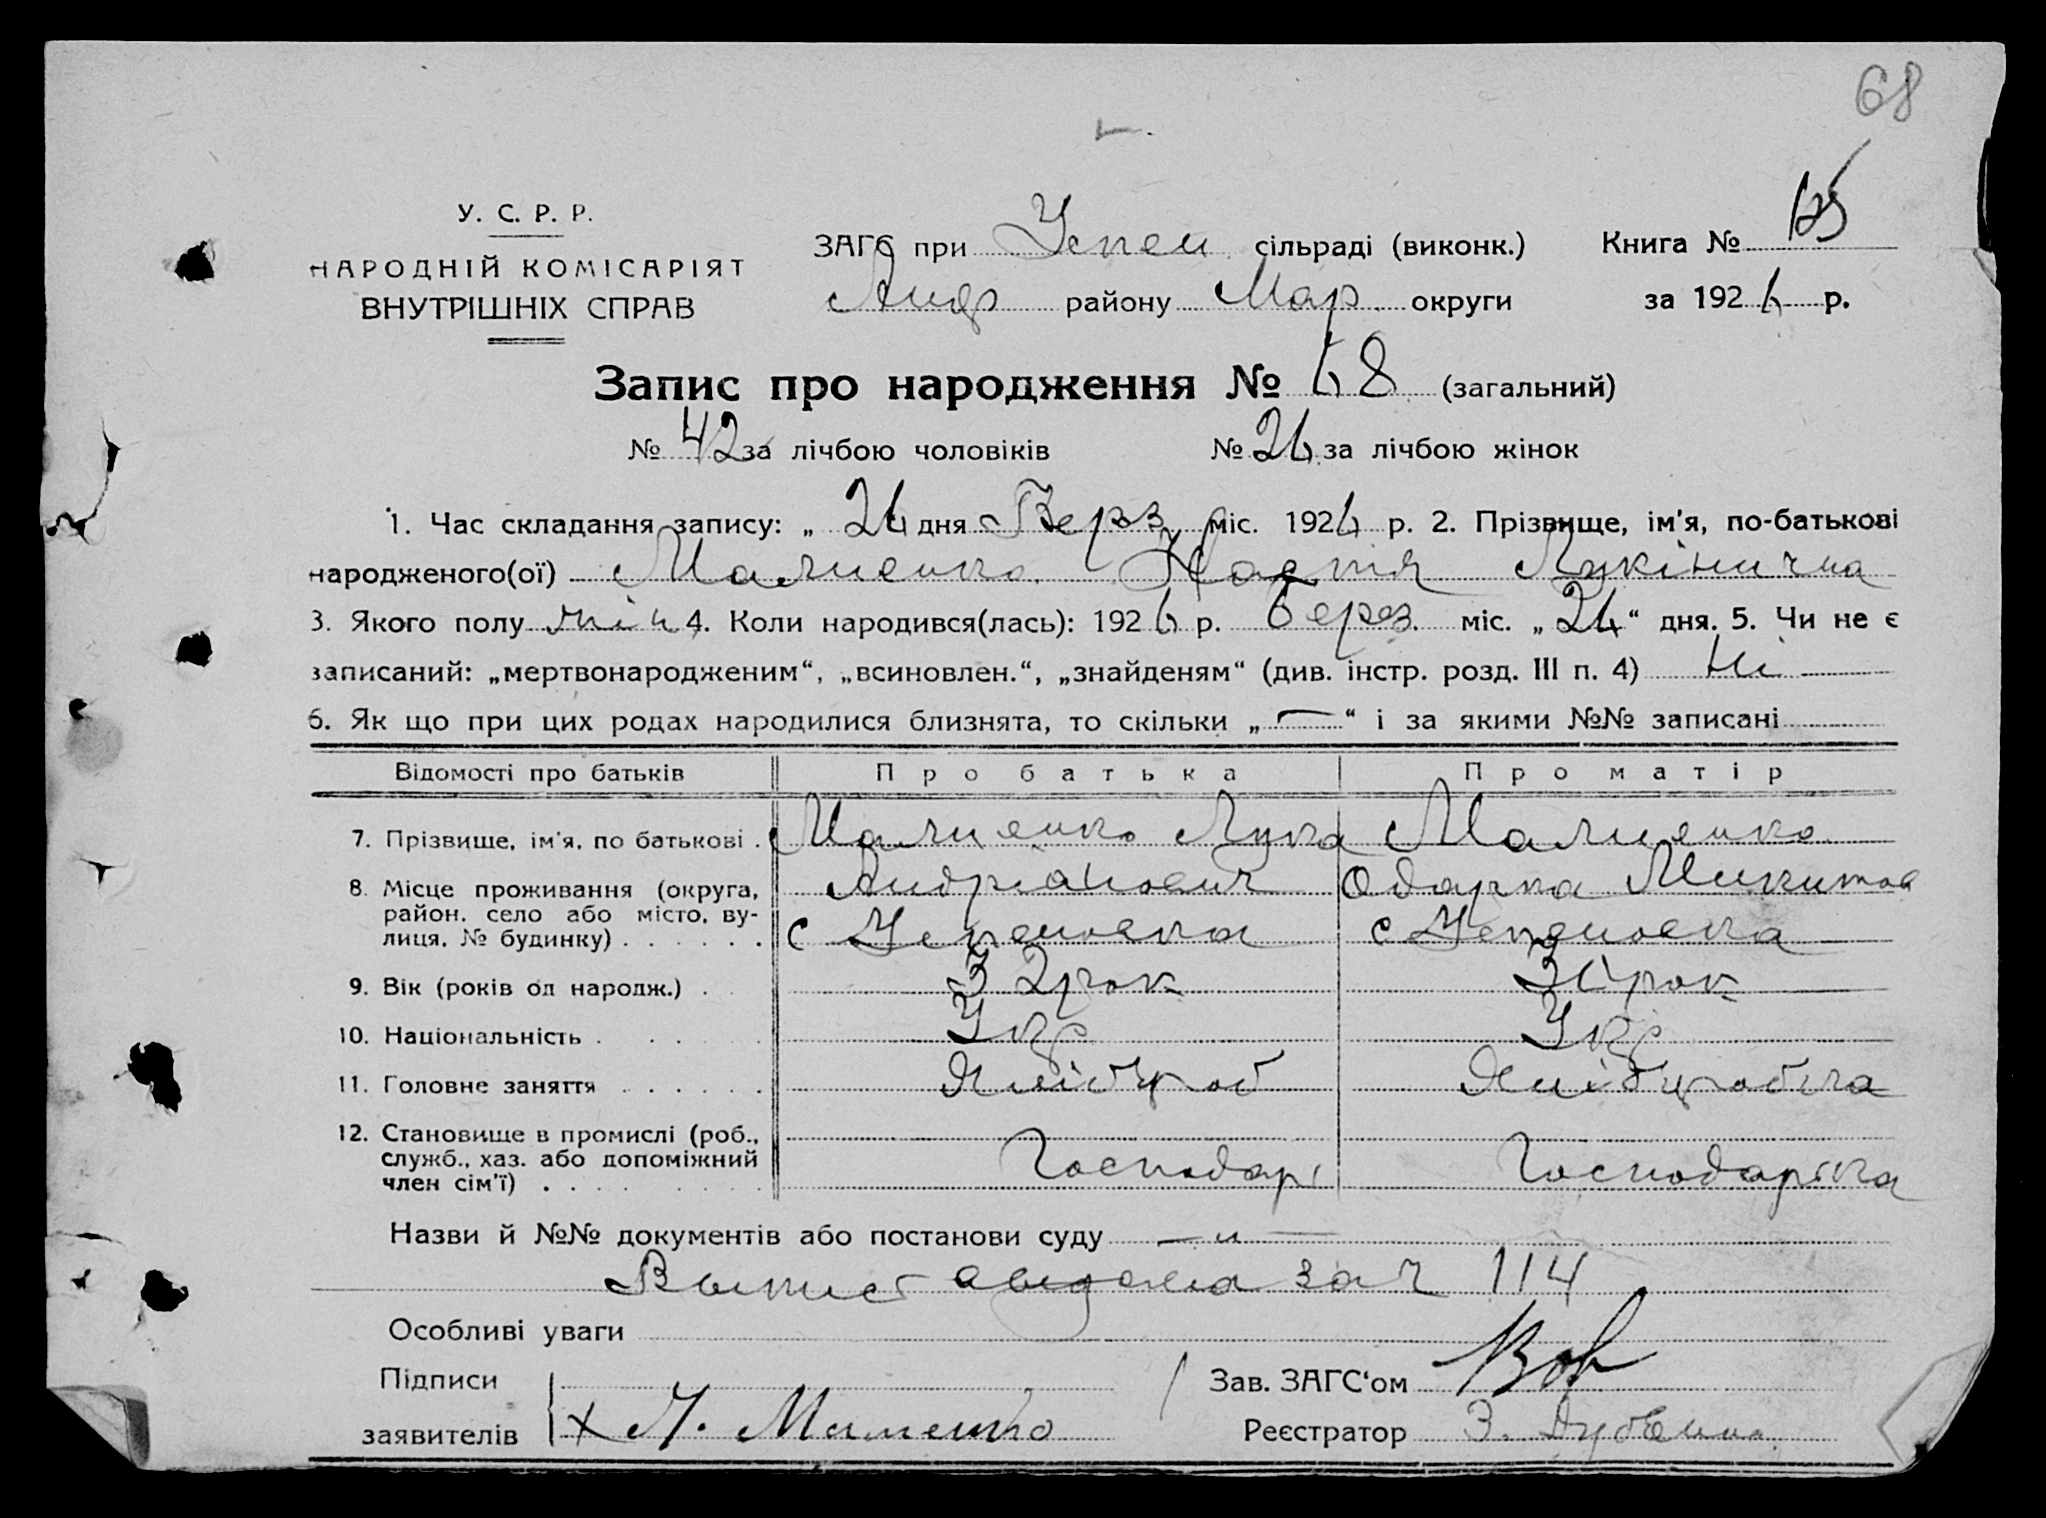 68
У. С. Р. Р.
НАРОДНІЙ КОМІСАРІЯТ
ВНУТРІШНІХ СПРАВ
ЗАГС при Успен сільраді (виконк.) Книга № 125
Андр району Мар округи за 1926 р.
Запис про народження № 68 (загальний)
№ 42 за лічбою чоловіків № 26 за лічбою жінок
1. Час складання запису: „ 26 дня Берз міс. 1926 р. 2. Прізвище, ім'я, по-батькові
народженого(ої) Малиенко Настя Лукінична
3. Якого полу жін 4. Коли народився(лась): 1926 р. берез. міс. „24“ дня. 5. Чи не є
записаний: „мертвонародженим“, „всиновлен.“, „знайденям“ (див. інстр. розд. III п. 4) Ні
6. Як що при цих родах народилися близнята, то скільки „—“ і за якими №№ записані
Відомості про батьків Про батька Про матір
7. Прізвище, ім'я, по батькові . Малиенко Лука Малиенко
Андріанович Одарка Микитов
8. Місце проживання (округа,
район, село або місто, ву-
лиця, № будинку) . . . . . . с Успеновка с Успеновка
9. Вік (років од народж.) . 32 рок 31 рок
10. Національність . . . . . Укр Укр
11. Головне заняття . . . . . . Хлібороб Хліборобка
12. Становище в промислі (роб.,
служб., хаз. або допоміжний
член сім'ї) . . . . Господарь Господарька
Назви й №№ документів або постанови суду — „ —
Выпис видана за ч 114
Особливі уваги
Підписи Зав. ЗАГС'ом
заявителів х Реєстратор З.